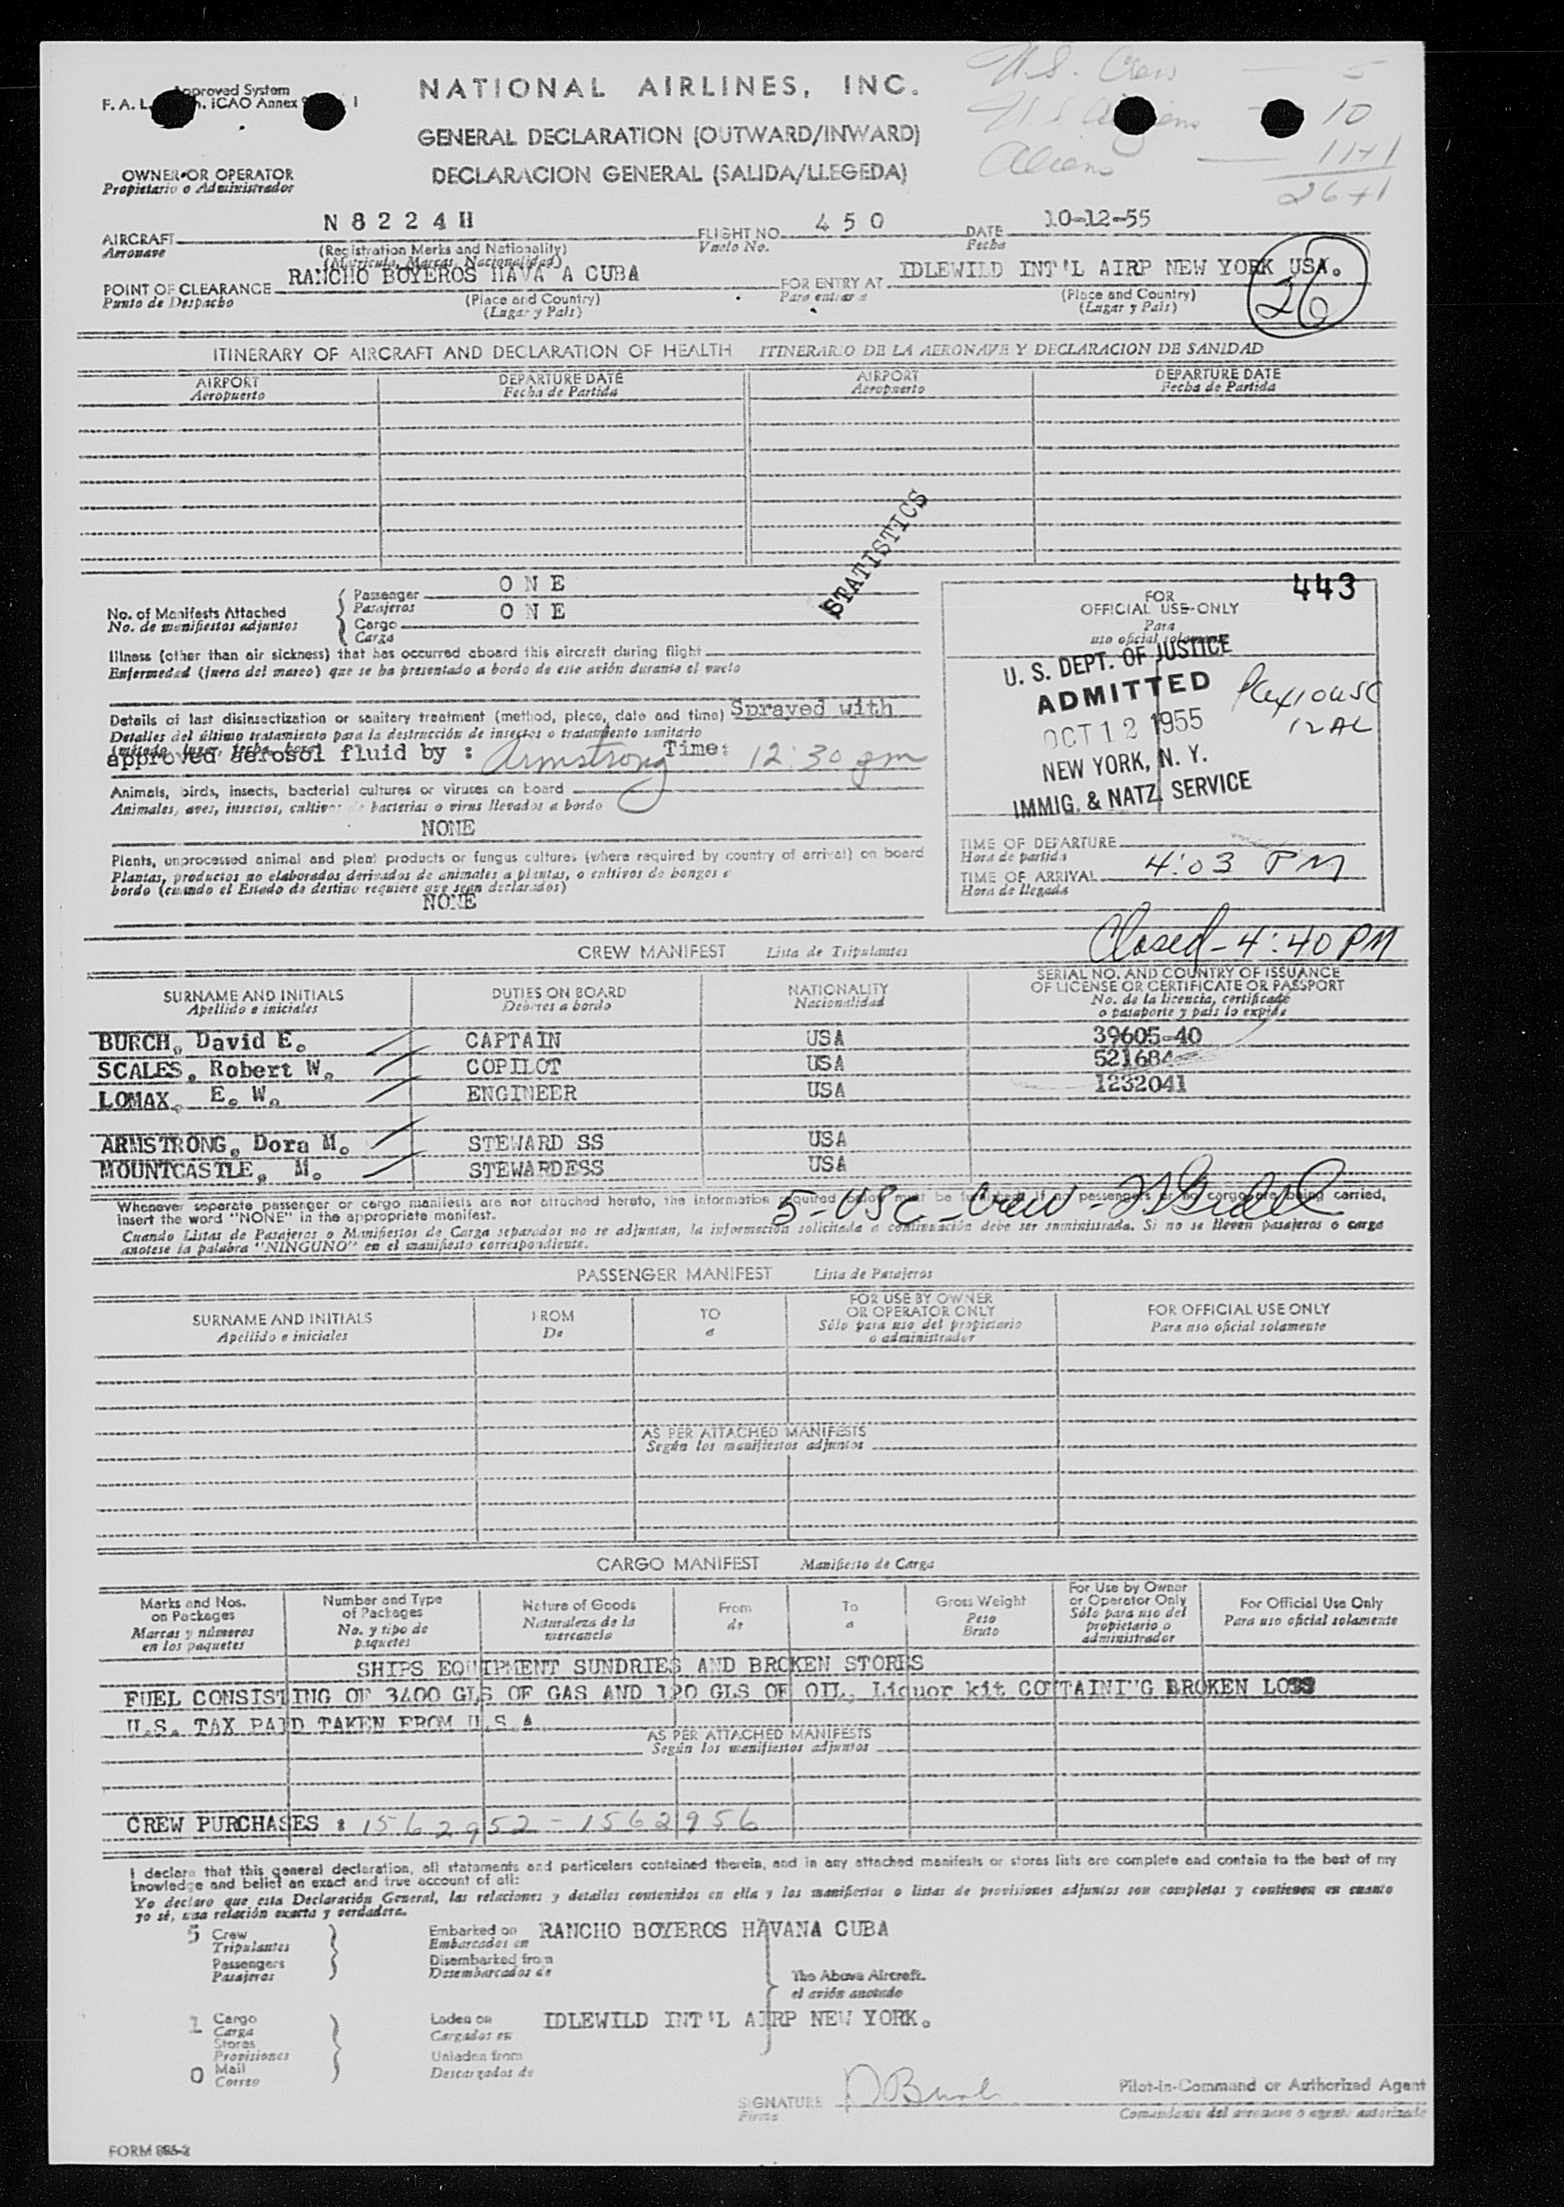 Approved System
F. A. L. ICAO Annex 1
NATIONAL AIRLINES, INC.
GENERAL DECLARATION (OUTWARD/INWARD)
DECLARACION GENERAL (SALIDA/LLEGEDA)
U.S. Crew — 5
10
Aliens — 11+1
26+1
OWNER OR OPERATOR
Propietario o Administrador
AIRCRAFT N 8 2 2 4 H FLIGHT NO. 4 5 0 DATE 10-12-55
Aeronave (Registration Marks and Nationality) Vuelo No. Fecha
(Matricula, Marcas, Nacionalidad)
POINT OF CLEARANCE RANCHO BOYEROS HAVA A CUBA FOR ENTRY AT IDLEWILD INT'L AIRP NEW YORK USA.
Punto de Despacho (Place and Country) Para entrar a (Place and Country)
(Lugar y Pais) (Lugar y Pais)
26
ITINERARY OF AIRCRAFT AND DECLARATION OF HEALTH ITINERARIO DE LA AERONAVE Y DECLARACION DE SANIDAD
AIRPORT DEPARTURE DATE AIRPORT DEPARTURE DATE
Aeropuerto Fecha de Partida Aeropuerto Fecha de Partida
STATISTICS
No. of Manifests Attached Passenger O N E
No. de manifiestos adjuntos Pasajeros
Cargo O N E
Carga
Illness (other than air sickness) that has occurred aboard this aircraft during flight
Enfermedad (fuera del mareo) que se ha presentado a bordo de este avión durante el vuelo
Details of last disinsectization or sanitary treatment (method, place, date and time) Sprayed with
Detalles del último tratamiento para la destrucción de insectos o tratamiento sanitario
(método, lugar, fecha, hora)
approved aerosol fluid by : Armstrong Time: 12:30 pm
Animals, birds, insects, bacterial cultures or viruses on board
Animales, aves, insectos, cultivos de bacterias o virus llevados a bordo
NONE
Plants, unprocessed animal and plant products or fungus cultures (where required by country of arrival) on board
Plantas, productos no elaborados derivados de animales o plantas, o cultivos de hongos a
bordo (cuando el Estado de destino requiere que sean declarados)
NONE
443
FOR
OFFICIAL USE ONLY
Para
uso oficial solamente
U. S. DEPT. OF JUSTICE
ADMITTED
OCT 12 1955
NEW YORK, N. Y.
IMMIG. & NATZ. SERVICE
10USC
12 AL
TIME OF DEPARTURE
Hora de partida
TIME OF ARRIVAL 4:03 PM
Hora de llegada
Closed - 4:40 PM
CREW MANIFEST Lista de Tripulantes
SURNAME AND INITIALS DUTIES ON BOARD NATIONALITY SERIAL NO. AND COUNTRY OF ISSUANCE
Apellido e iniciales Deberes a bordo Nacionalidad OF LICENSE OR CERTIFICATE OR PASSPORT
No. de la licencia, certificado
o pasaporte y pais lo expide
BURCH, David E. CAPTAIN USA 39605-40
SCALES, Robert W. COPILOT USA 521684
LOMAX, E. W. ENGINEER USA 1232041
ARMSTRONG, Dora M. STEWARD SS USA
MOUNTCASTLE, M. STEWARDESS USA
Whenever separate passenger or cargo manifests are not attached hereto, the information required below must be furnished. If no passengers or no cargo are being carried,
insert the word "NONE" in the appropriate manifest.
5-USC-Crew-
Cuando Listas de Pasajeros o Manifiestos de Carga separados no se adjuntan, la información solicitada a continuación debe ser suministrada. Si no se lleven pasajeros o carga
anotese la palabra "NINGUNO" en el manifiesto correspondiente.
PASSENGER MANIFEST Lista de Pasajeros
SURNAME AND INITIALS FROM TO FOR USE BY OWNER FOR OFFICIAL USE ONLY
Apellido e iniciales De a OR OPERATOR ONLY Para uso oficial solamente
Sólo para uso del propietario
o administrador
AS PER ATTACHED MANIFESTS
Según los manifiestos adjuntos
CARGO MANIFEST Manifiesto de Carga
Marks and Nos. Number and Type Nature of Goods From To Gross Weight For Use by Owner For Official Use Only
on Packages of Packages Naturaleza de la de a Peso or Operator Only Para uso oficial solamente
Marcas y números No. y tipo de mercancia Bruto Sólo para uso del
en los paquetes paquetes propietario o
administrador
SHIPS EQUIPMENT SUNDRIES AND BROKEN STORES
FUEL CONSISTING OF 3400 GLS OF GAS AND 120 GLS OF OIL, Liquor kit CONTAINI"G BROKEN LOSS
U.S. TAX PAID TAKEN FROM U.S.A.
AS PER ATTACHED MANIFESTS
Según los manifiestos adjuntos
CREW PURCHASES : 1562952 - 1562956
I declare that this general declaration, all statements and particulars contained therein, and in any attached manifests or stores lists are complete and contain to the best of my
knowledge and belief an exact and true account of all:
Yo declaro que esta Declaración General, las relaciones y detalles contenidos en ella y los manifiestos o listas de provisiones adjuntos son completos y contienen en cuanto
yo sé, una relación exacta y verdadera.
5 Crew Embarked on RANCHO BOYEROS HAVANA CUBA
Tripulantes Embarcados en
Passengers Disembarked from
Pasajeros Desembarcados de
The Above Aircraft.
el avión anotado
1 Cargo Laden on IDLEWILD INT'L AIRP NEW YORK.
Carga Cargados en
Stores
Provisiones Unladen from
0 Mail Descargados de
Correo
SIGNATURE D Burch Pilot-in-Command or Authorized Agent
Firma Comandante del aeronave o agente autorizado
FORM 885-2